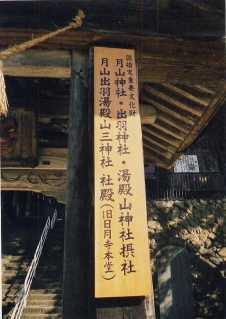 国指定重要文化財
月山神社・出羽神社・湯殿山神社摂社
月山出羽湯殿山三神社 社殿(旧日月寺本堂)